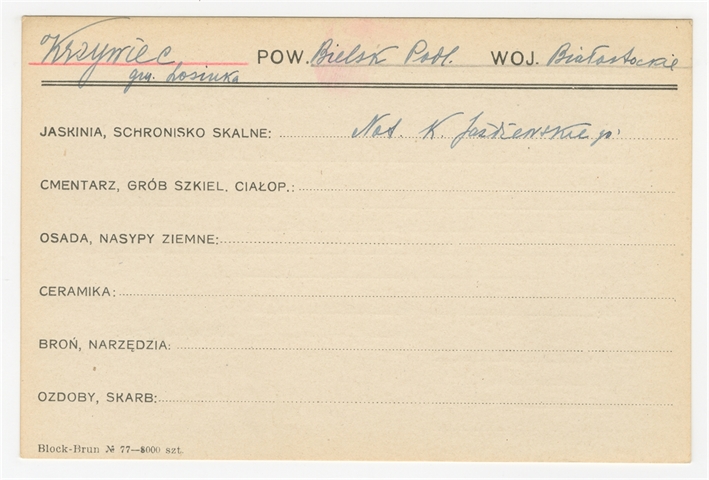 Krzywiec, POW. Bielsk Podl. WOJ. Białostockie
gm. Łosinka
JASKINIA, SCHRONISKO SKALNE: Not. K. Jażdżewskiego
CMENTARZ, GRÓB SZKIEL. CIAŁOP.:
OSADA, NASYPY ZIEMNE:
CERAMIKA:
BROŃ, NARZĘDZIA:
OZDOBY, SKARB:
Block-Brun № 77—8000 szt.